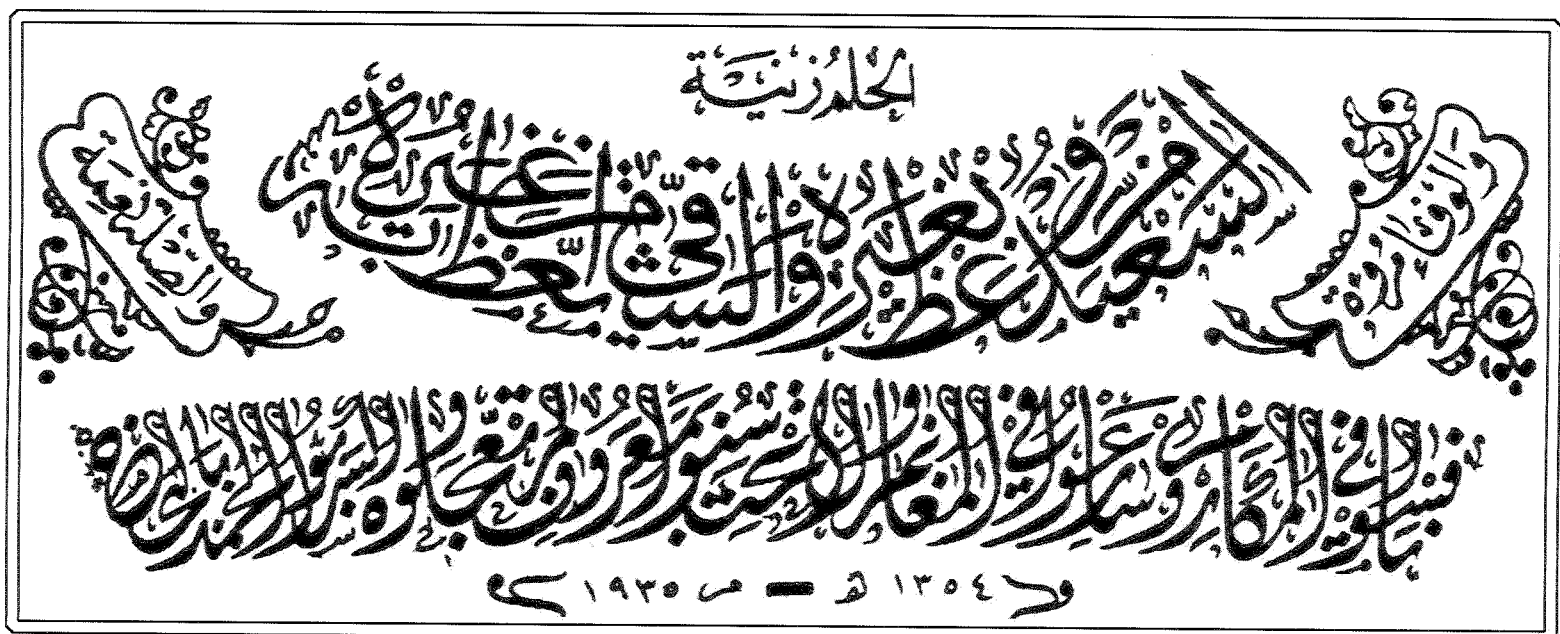 الحلم زينة
والوفاء مروة
والصلة نعمة
السعيد من وعظ بغيره والشقي من اتعظ به غيره
نافسوا في المكارم وسارعوا في المغانم ولا تحتسبوا بمعروف لم تعجلوه واكسبوا الحمد
١٣٥٤ هـ — ١٩٣٥ م